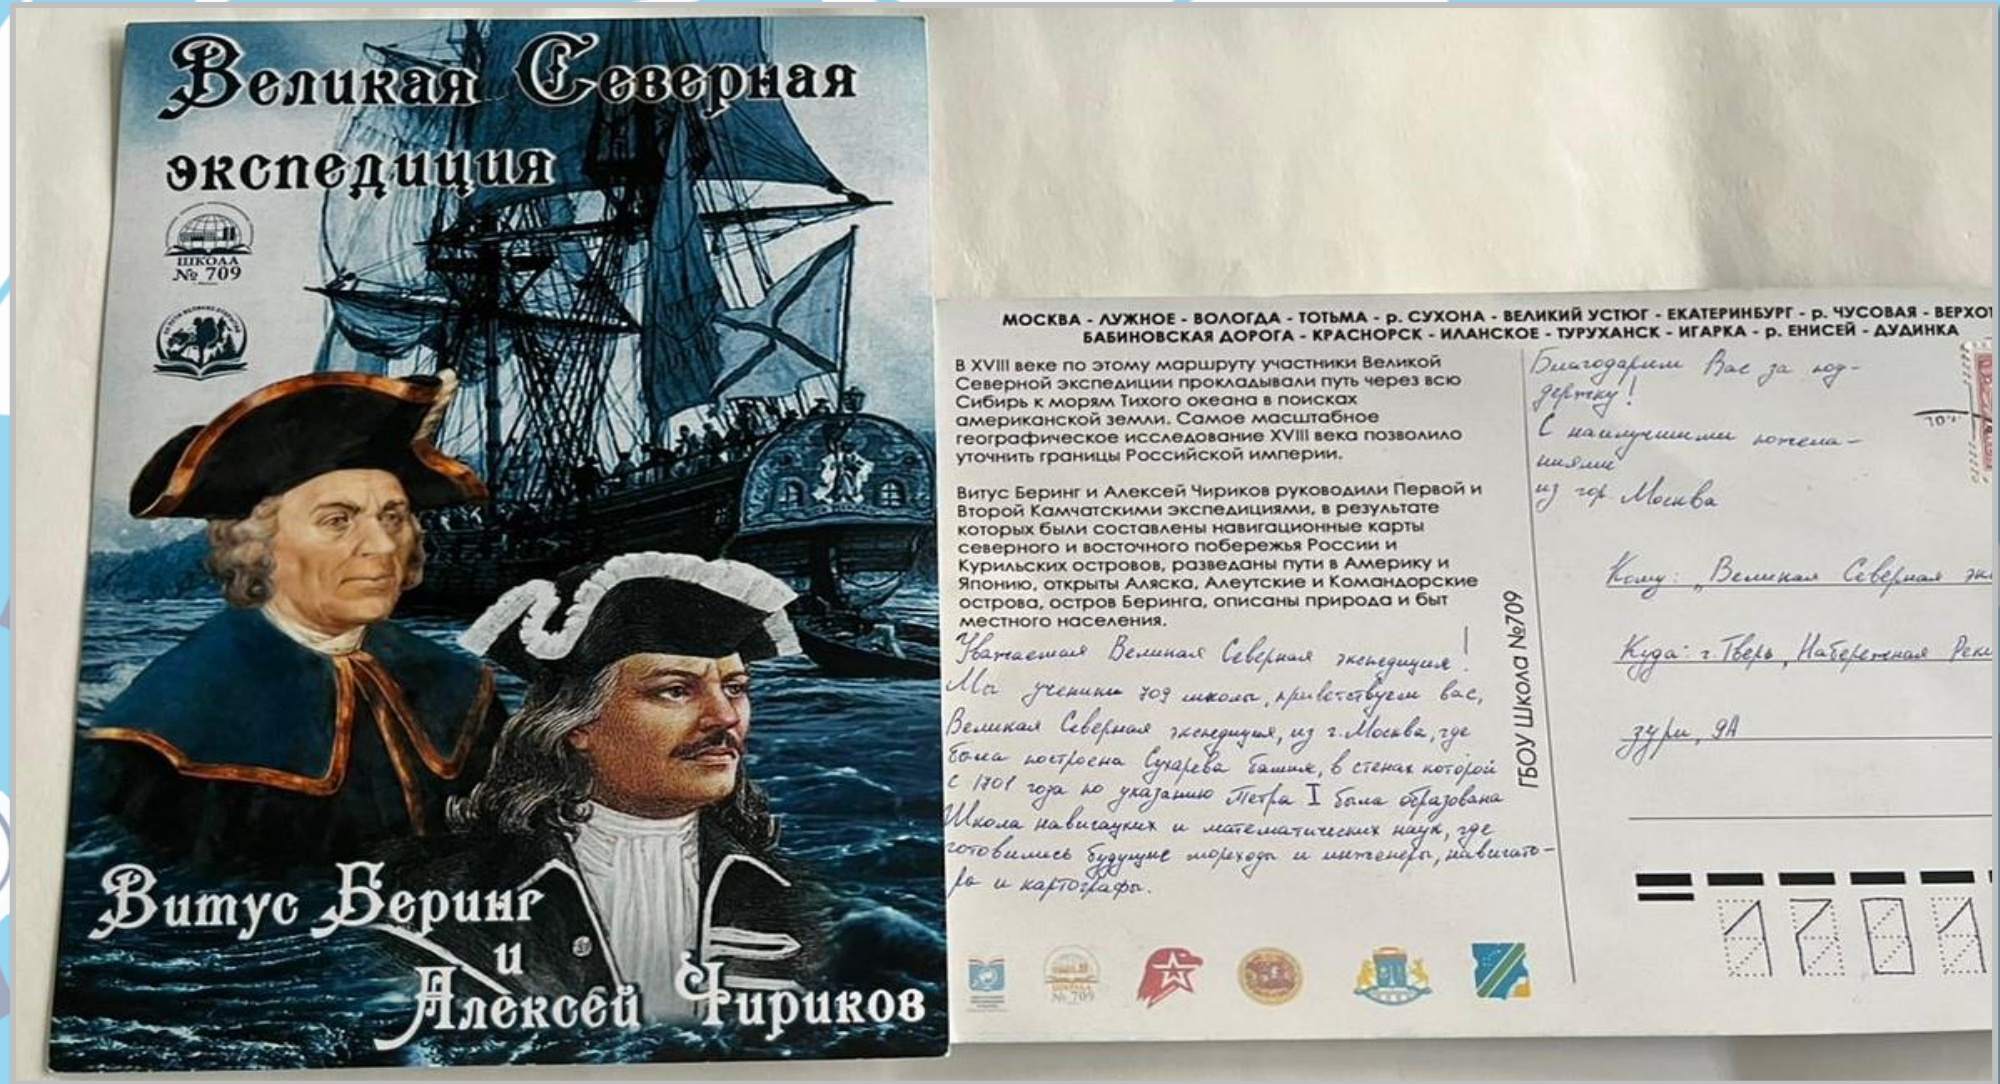 Великая Северная
экспедиция
ШКОЛА
№ 709
Витус Беринг
и
Алексей Чириков
МОСКВА - ЛУЖНОЕ - ВОЛОГДА - ТОТЬМА - р. СУХОНА - ВЕЛИКИЙ УСТЮГ - ЕКАТЕРИНБУРГ - р. ЧУСОВАЯ - ВЕРХОТ
БАБИНОВСКАЯ ДОРОГА - КРАСНОРСК - ИЛАНСКОЕ - ТУРУХАНСК - ИГАРКА - р. ЕНИСЕЙ - ДУДИНКА
В XVIII веке по этому маршруту участники Великой
Северной экспедиции прокладывали путь через всю
Сибирь к морям Тихого океана в поисках
американской земли. Самое масштабное
географическое исследование XVIII века позволило
уточнить границы Российской империи.
Витус Беринг и Алексей Чириков руководили Первой и
Второй Камчатскими экспедициями, в результате
которых были составлены навигационные карты
северного и восточного побережья России и
Курильских островов, разведаны пути в Америку и
Японию, открыты Аляска, Алеутские и Командорские
острова, остров Беринга, описаны природа и быт
местного населения.
Уважаемая Великая Северная экспедиция!
Мы ученики 709 школы, приветствуем вас,
Великая Северная экспедиция, из г. Москва, где
была построена Сухарева башня, в стенах которой
с 1701 года по указанию Петра I была образована
Школа навигацких и математических наук, где
готовились будущие мореходы и инженеры, навигато-
ры и картографы.
ГБОУ Школа №709
Благодарим Вас за под-
держку!
С наилучшими пожела-
ниями
из гор. Москва
Кому: „Великая Северная эк
Куда: г. Тверь, Набережная Реки
зури, 9А
1701
№ 709